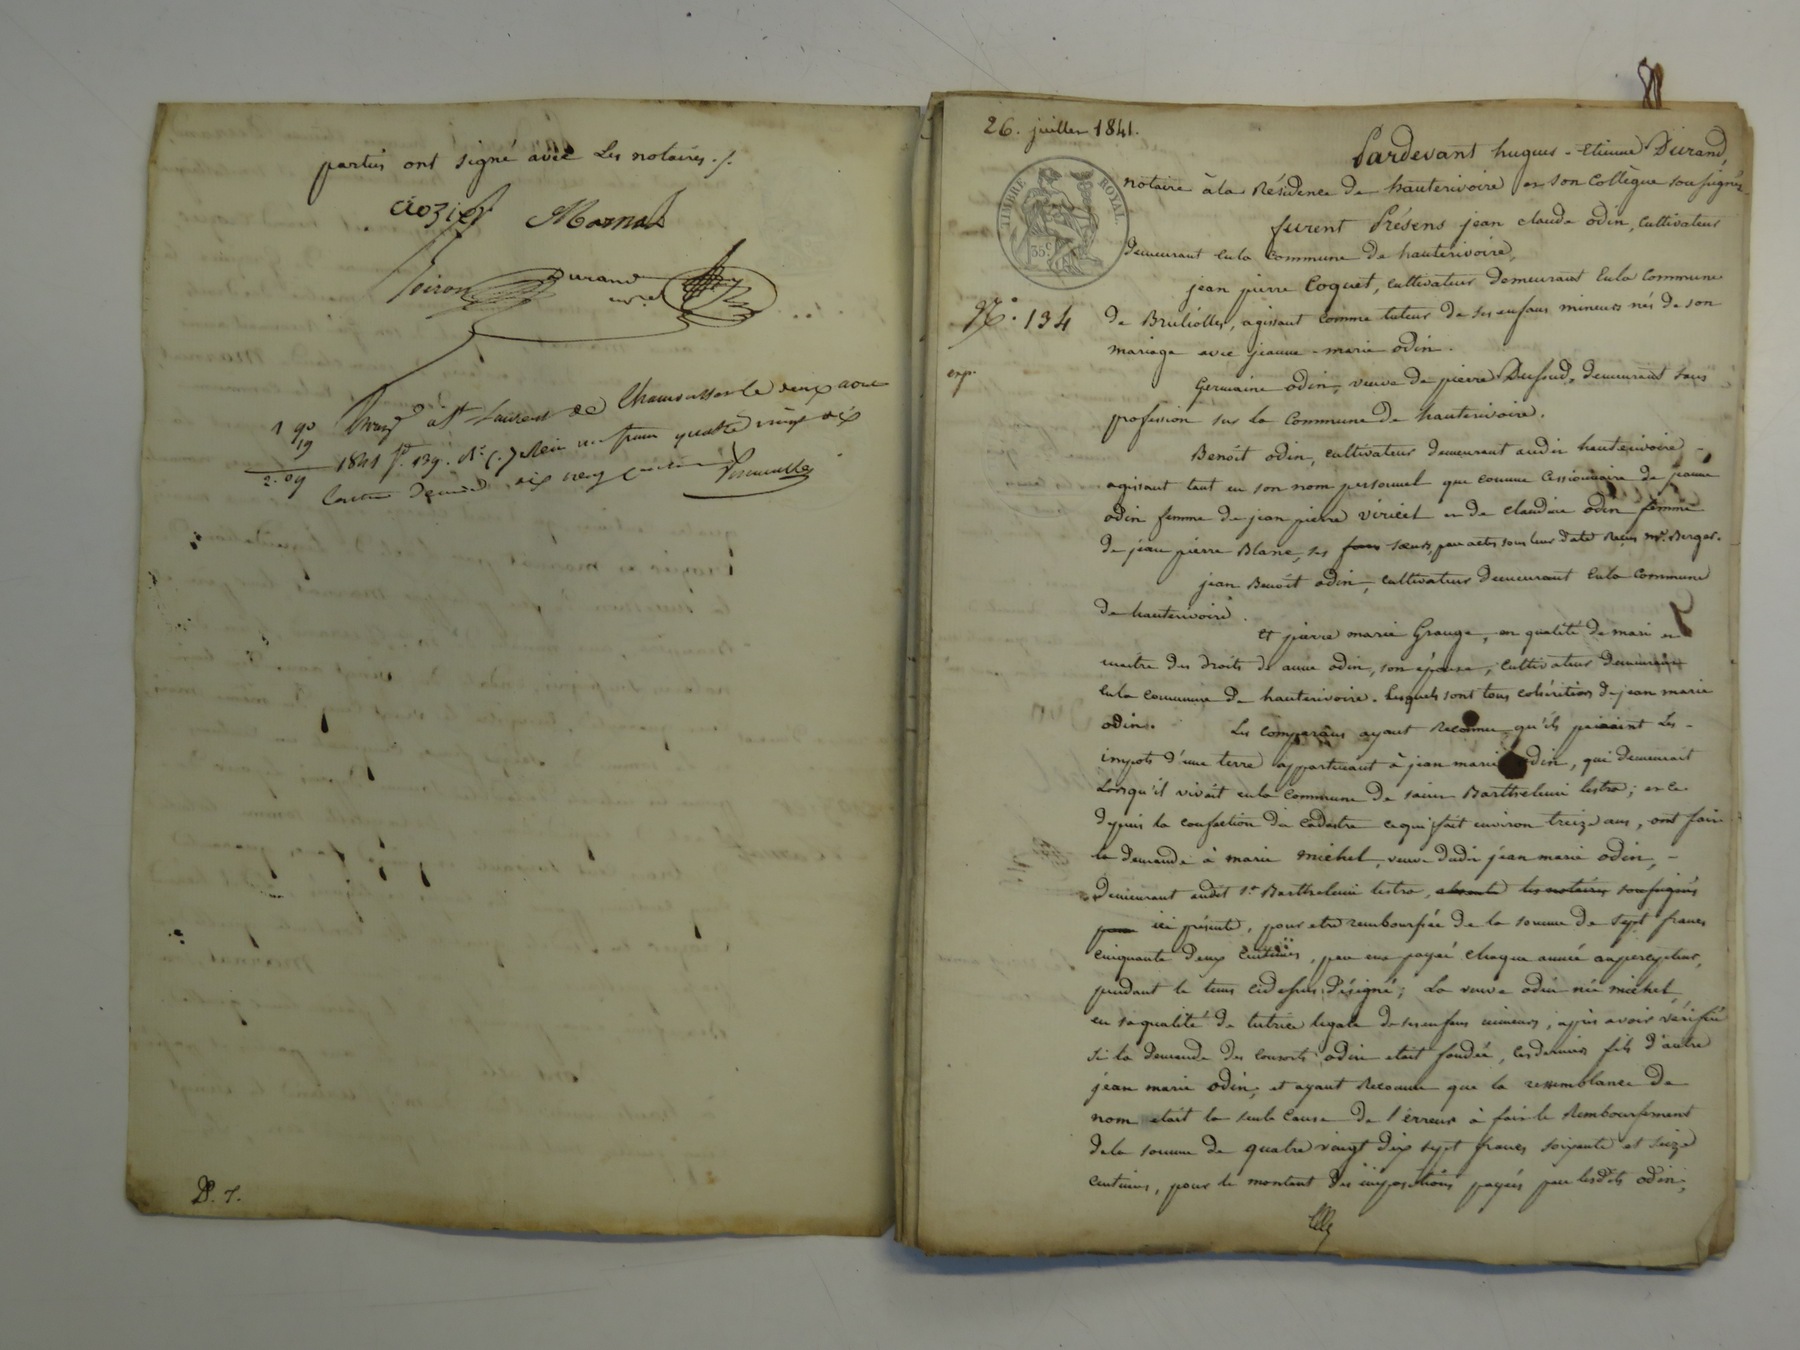 partis ont signé avec les notaires ./.
Crozier Marnas
Voiron Durand
nore
1 90
19
2.09
Enreg à St Laurent de Chamousset le deux aout
1841 fo. 139. Ro. C. 7 Recu un franc quatre vingt dix
centimes Decime dix neuf centimes
P. 7.
26. juillet 1841.
Pardevant hugues-Etienne Durand,
notaire à la Résidence de hauterivoire et son Collègue soussignés
TIMBRE ROYAL
35 c
furent Présens jean claude odin, cultivateur
demeurant enla Commune de hauterivoire,
jean pierre Coquet, cultivateur demeurant enla Commune
No. 134
de Brullolles, agissant comme tuteur de ses enfans mineurs nés de son
mariage avec jeanne-marie odin.
exp.
Germaine odin, veuve de pierre Dufoud, demeurant sans
profession sur la Commune de hauterivoire.
Benoit odin, cultivateur demeurant audit hauterivoire -
agissant tant en son nom personnel que comme Cessionnaire de jeanne
odin femme de jean pierre véricel et de claudine odin femme
de jean pierre Blanc, ses sœurs, par actes sous leur date Reçus Me. Berger.
jean Benoit odin, cultivateur demeurant enla Commune
de hauterivoire.
et pierre marie Grange, en qualité de mari et
maitre des droits de anne odin, son épouse, cultivateur demeurant
enla commune de hauterivoire. Lesquels sont tous cohéritiers de jean marie
odin. Les comparans ayant Reconnu qu'ils paiaint les -
impots d'une terre appartenant à jean marie odin, qui demeurait
Lorsqu'il vivait enla Commune de saint Barthelemi lestra; et ce
depuis la confection du cadastre cequi fait environ treize ans, ont fait
la demande à marie michel, veuve dudit jean marie odin, -
demeurant audit St Barthelemi lestra, absente les notaires soussignés
pour ici présente, pour etre remboursée de la somme de sept francs
cinquante deux centimes, par eux payée chaque année aupercepteur,
pendant le tems cidessus désigné; La veuve odin née michel,
en saqualité de tutrice legale de sesenfans mineurs, après avoir vérifié
si la demande des consorts odin etait fondée, cesderniers fils d'autre
jean marie odin, et ayant Reconnu que la ressemblance de
nom etait la seule Cause de l'érreur à fait le Remboursement
dela somme de quatre vingt dix sept francs soixante et seize
centimes, pour le montant des impositions payées par lesdits odin;